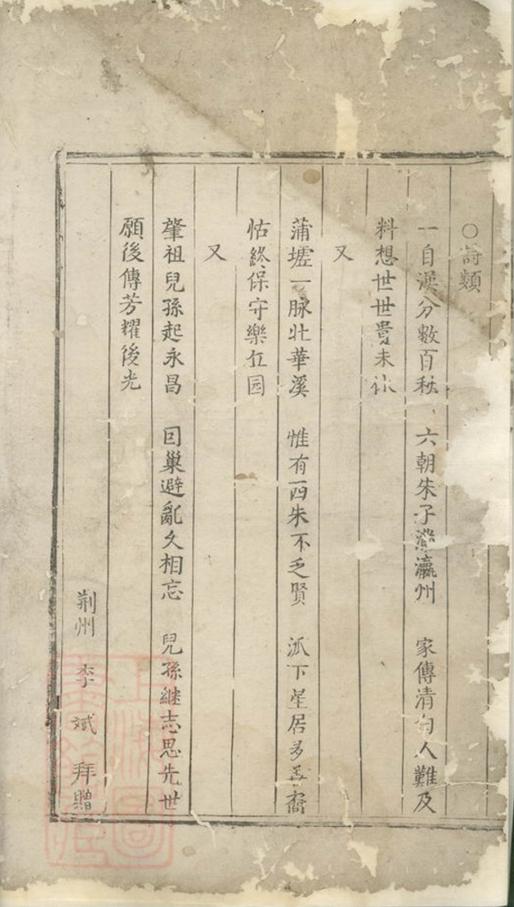 ○詩類
一自漢分數百秋 六朝朱子 瀛州 家傳清白人難及
料想世世貴未休
又
蒲墟一脉壯華溪 惟有四朱不乏賢 派下星居多 裔
怙終保守樂丘园
又
肇祖兒孫起永昌 因巢避亂久相忘 兒孫继志思先世
願後傳芳耀後光
荆州 李斌 拜贈